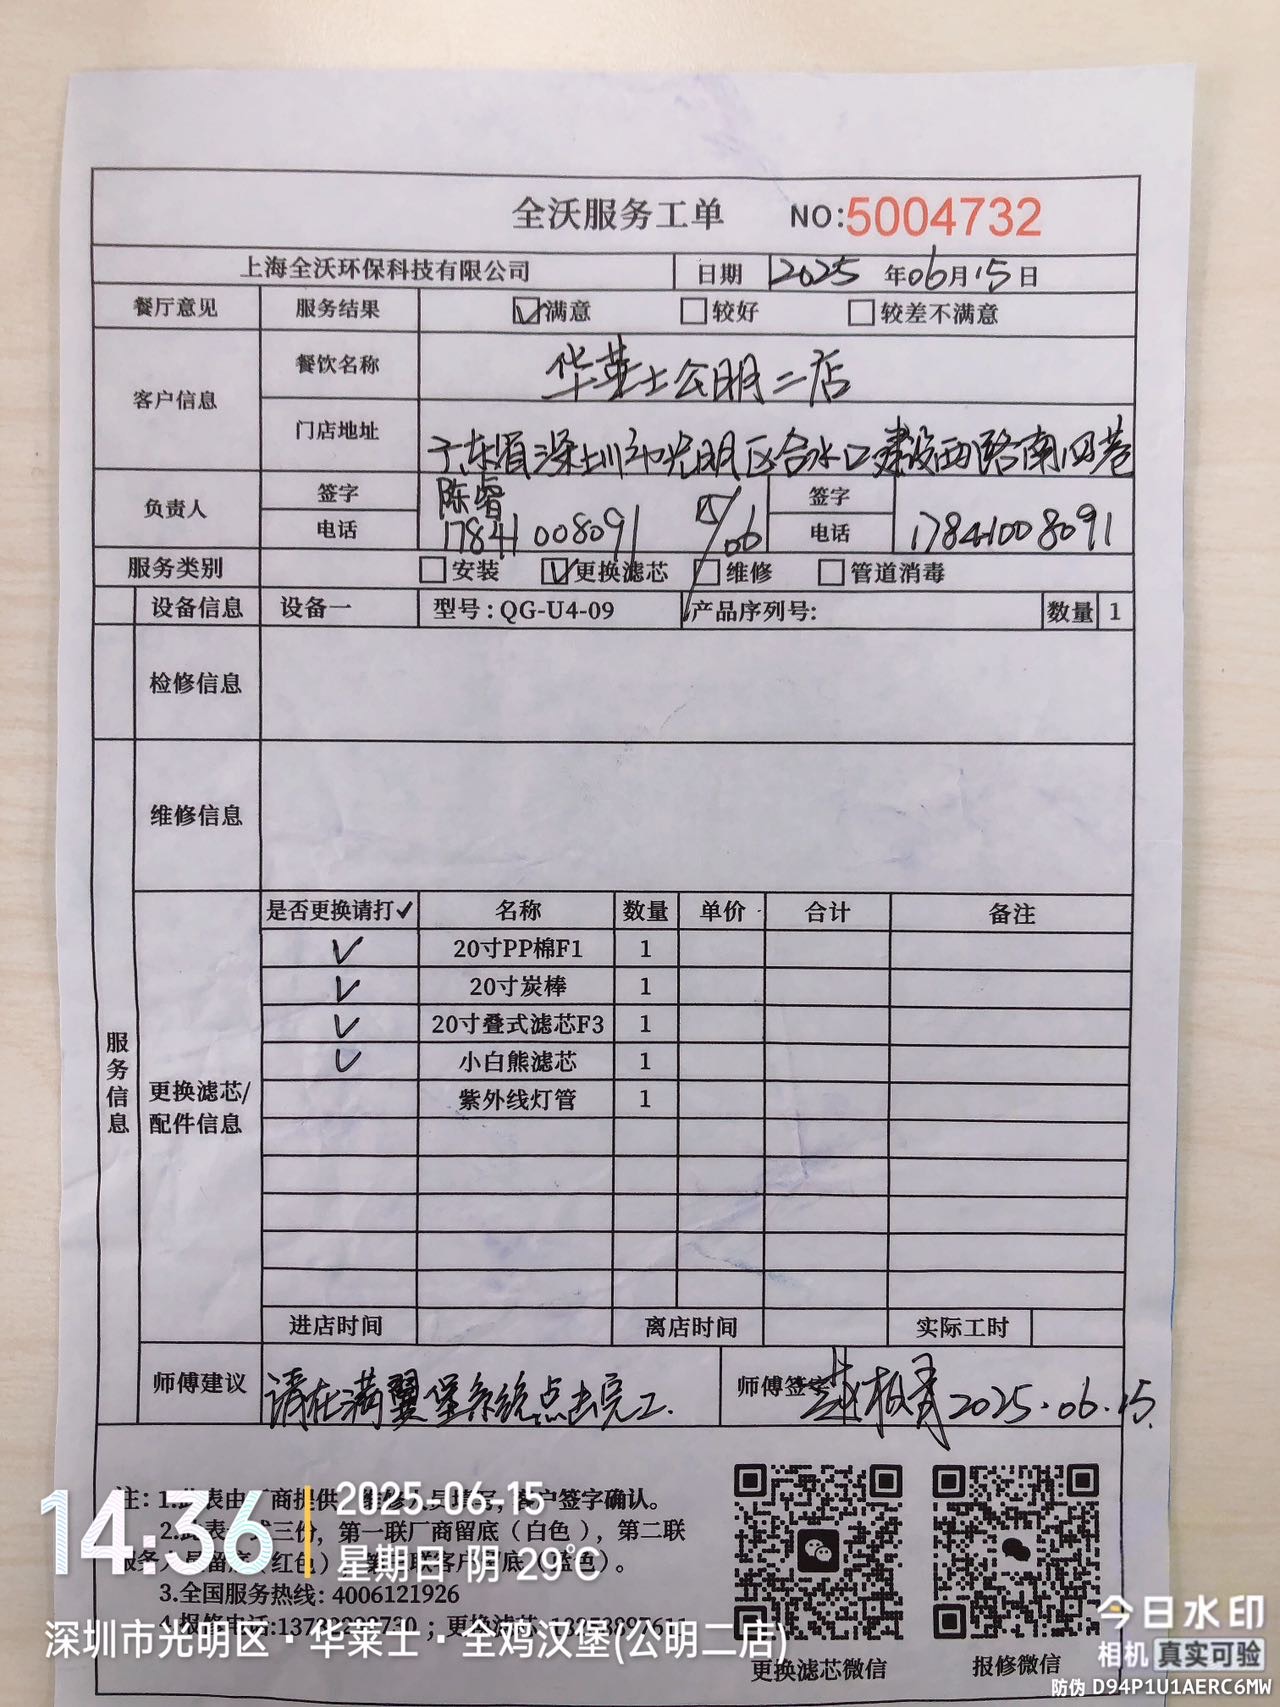 全沃服务工单 NO:5004732
上海全沃环保科技有限公司 日期 2025 年06月15日
餐厅意见 服务结果 满意 较好 较差不满意
客户信息 餐饮名称 华莱士公明二店
门店地址 广东省深圳市光明区合水口建设西路南四巷
负责人 签字 陈睿 15/06 签字
电话 17841008091 电话 17841008091
服务类别 安装 更换滤芯 维修 管道消毒
设备信息 设备一 型号:QG-U4-09 产品序列号: 数量 1
检修信息
维修信息
服务信息
更换滤芯/
配件信息
是否更换请打✓ 名称 数量 单价 合计 备注
✓ 20寸PP棉F1 1
✓ 20寸炭棒 1
✓ 20寸叠式滤芯F3 1
✓ 小白熊滤芯 1
紫外线灯管 1
进店时间 离店时间 实际工时
师傅建议 请在满翼堡系统点击完工. 师傅签字 2025.06.15.
注: 1.此表由厂商提供 员填写, 客户签字确认。
2.此表 式三份, 第一联厂商留底(白色), 第二联
服务人员留底(红色), 第三联客户留底(蓝色)。
3.全国服务热线: 4006121926
4.报修电话: ; 更换滤芯
更换滤芯微信 报修微信
14:36 2025-06-15
星期日 阴 29℃
深圳市光明区·华莱士·全鸡汉堡(公明二店)
今日水印
相机 真实可验
防伪 D94P1U1AERC6MW